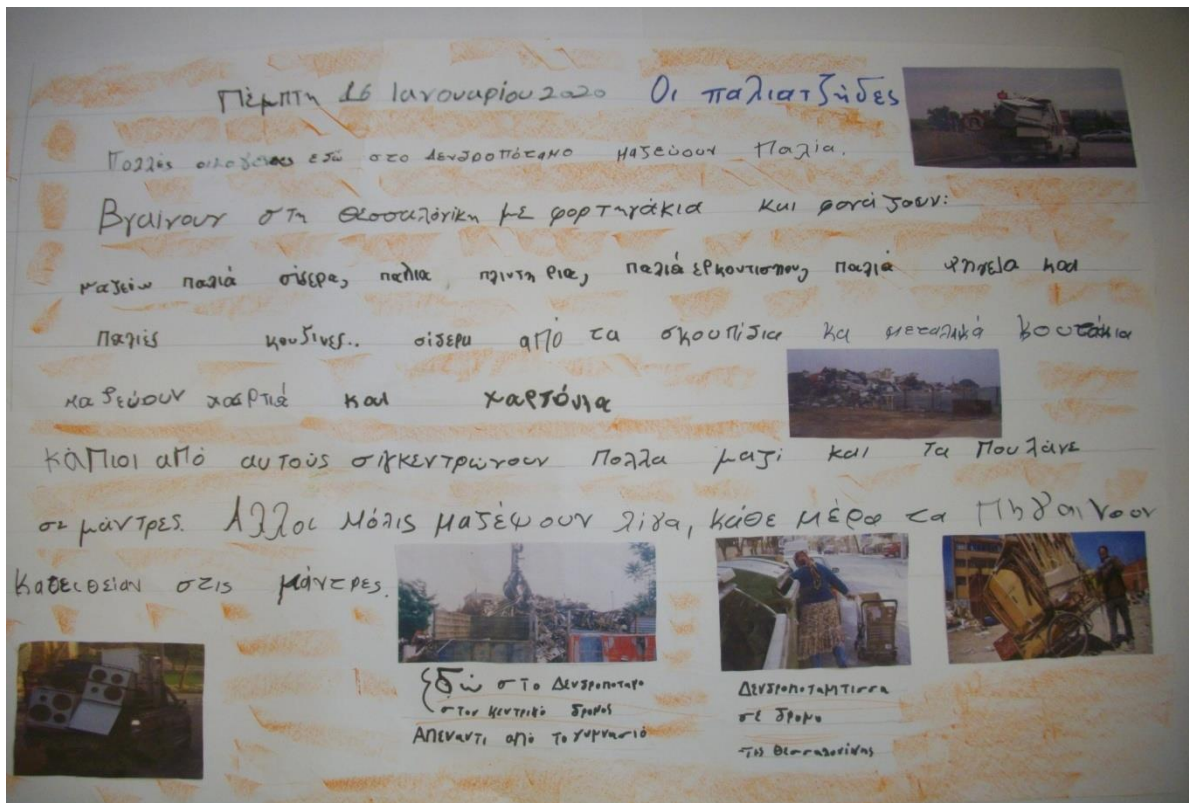 Πέμπτη 16 Ιανουαρίου 2020 Οι παλιατζήδες
Πολλές οικογένιες εδώ στο Δενδροπόταμο μαζεύουν Παλία.
Βγαίνουν στη Θεσσαλόνικη με φορτηγάκια και φονάζουν:
μαζεύω παλιά σίδερα, παλια πλιντη ρια, παλιά ερκοντισιον, παλιά ψηγεία και
Παλιές κουζινες.. σίδερα από τα σκουπίδια κα μεταλικά κουτάκια
μαζεύουν χαρτιά και χαρτόνια
κάποιοι από αυτούς σιγκεντρώνουν Πολλα μαζί και τα Πουλάνε
σε μάντρες. Αλλοι μόλις μαζέψουν λίγα, κάθε μέρα τα Πηγαίνουν
κατευθείαν στις μάντρες.
Εδώ στο Δενδροποταμο
στον κεντρικό δρομος
Απεναντι από το γυμνασιό
Δενδροποταμητισσα
σε δρομο
της Θεσσαλονίκης